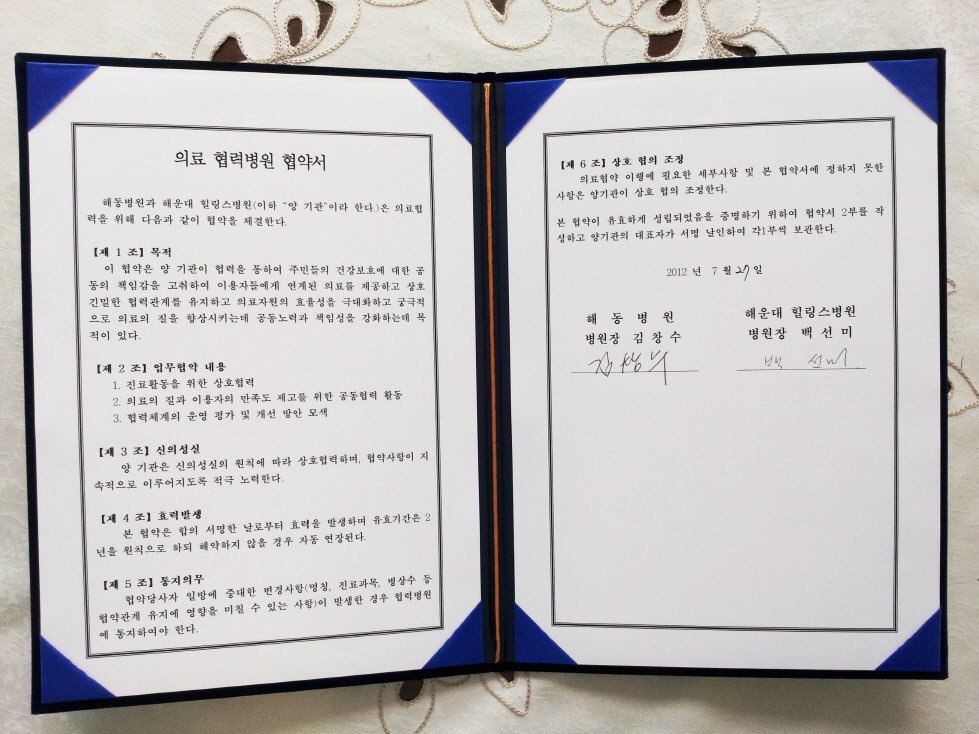 의료 협력병원 협약서
해동병원과 해운대 힐링스병원(이하 "양 기관"이라 한다.)은 의료협
력을 위해 다음과 같이 협약을 체결한다.
【제 1 조】 목적
이 협약은 양 기관이 협력을 통하여 주민들의 건강보호에 대한 공
동의 책임감을 고취하여 이용자들에게 연계된 의료를 제공하고 상호
긴밀한 협력관계를 유지하고 의료자원의 효율성을 극대화하고 궁극적
으로 의료의 질을 향상시키는데 공동노력과 책임성을 강화하는데 목
적이 있다.
【제 2 조】 업무협약 내용
1. 진료활동을 위한 상호협력
2. 의료의 질과 이용자의 만족도 제고를 위한 공동협력 활동
3. 협력체계의 운영 평가 및 개선 방안 모색
【제 3 조】 신의성실
양 기관은 신의성실의 원칙에 따라 상호협력하며, 협약사항이 지
속적으로 이루어지도록 적극 노력한다.
【제 4 조】 효력발생
본 협약은 합의 서명한 날로부터 효력을 발생하며 유효기간은 2
년을 원칙으로 하되 해약하지 않을 경우 자동 연장된다.
【제 5 조】 통지의무
협약당사자 일방에 중대한 변경사항(명칭, 진료과목, 병상수 등
협약관계 유지에 영향을 미칠 수 있는 사항)이 발생한 경우 협력병원
에 통지하여야 한다.
【제 6 조】 상호 협의 조정
의료협약 이행에 필요한 세부사항 및 본 협약서에 정하지 못한
사항은 양기관이 상호 협의 조정한다.
본 협약이 유효하게 성립되었음을 증명하기 위하여 협약서 2부를 작
성하고 양기관의 대표자가 서명 날인하여 각1부씩 보관한다.
2012 년 7 월 27 일
해 동 병 원 해운대 힐링스병원
병원장 김 창 수 병원장 백 선 미
김창수 백 선미